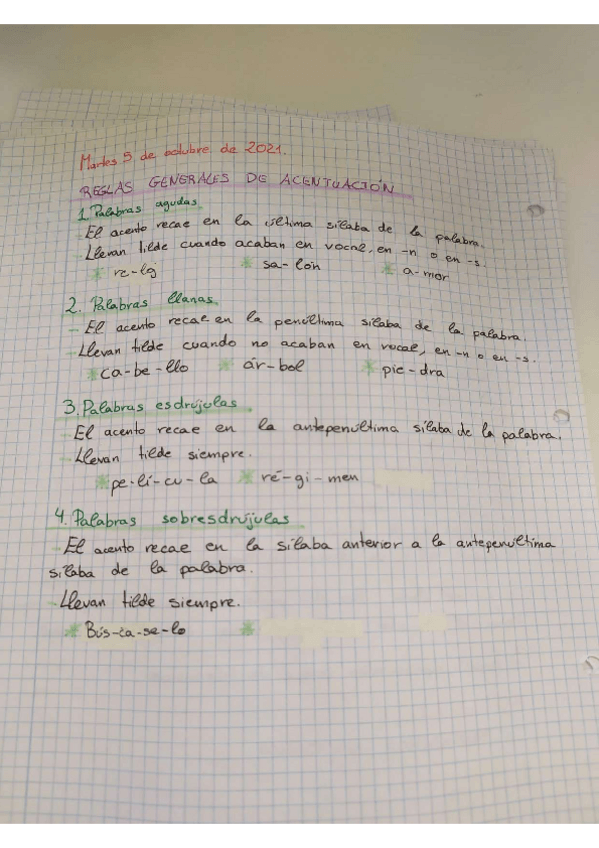 Martes 5 de octubre de 2021.
REGLAS GENERALES DE ACENTUACIÓN
1. Palabras agudas
El acento recae en la última sílaba de la palabra.
Llevan tilde cuando acaban en vocal, en -n o en -s.
* re-loj * sa-lón * a-mor
2. Palabras llanas.
- El acento recae en la penúltima sílaba de la palabra.
- Llevan tilde cuando no acaban en vocal, en -n o en -s.
* ca-be-llo * ár-bol * pie-dra
3. Palabras esdrújulas.
- El acento recae en la antepenúltima sílaba de la palabra.
- Llevan tilde siempre.
* pe-lí-cu-la * ré-gi-men
4. Palabras sobresdrújulas
- El acento recae en la sílaba anterior a la antepenúltima
sílaba de la palabra.
- Llevan tilde siempre.
* Bús-ca-se-lo *